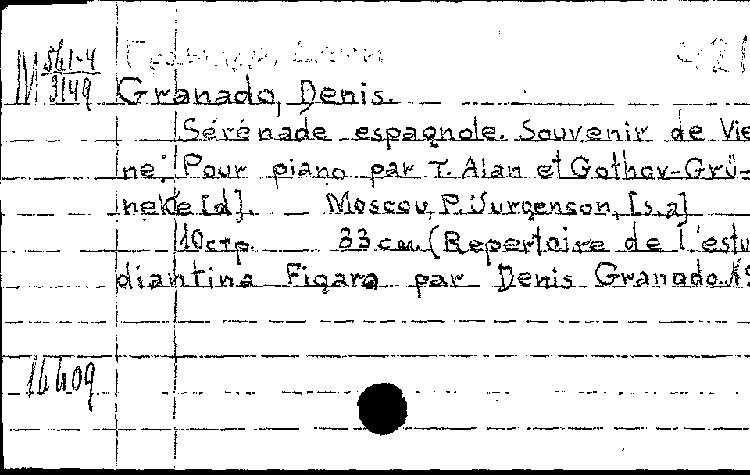 M 561-4
3149
Granado, Denis.
Sérénade espagnole. Souvenir de Vie
ne. Pour piano par T. Alan et Gothov-Grü-
neke [d]. Moscou, P. Jurgenson, [s.a]
10 стр. 33 см. (Repertoire de l'estu
diantina Figaro par Denis Granado.
16409